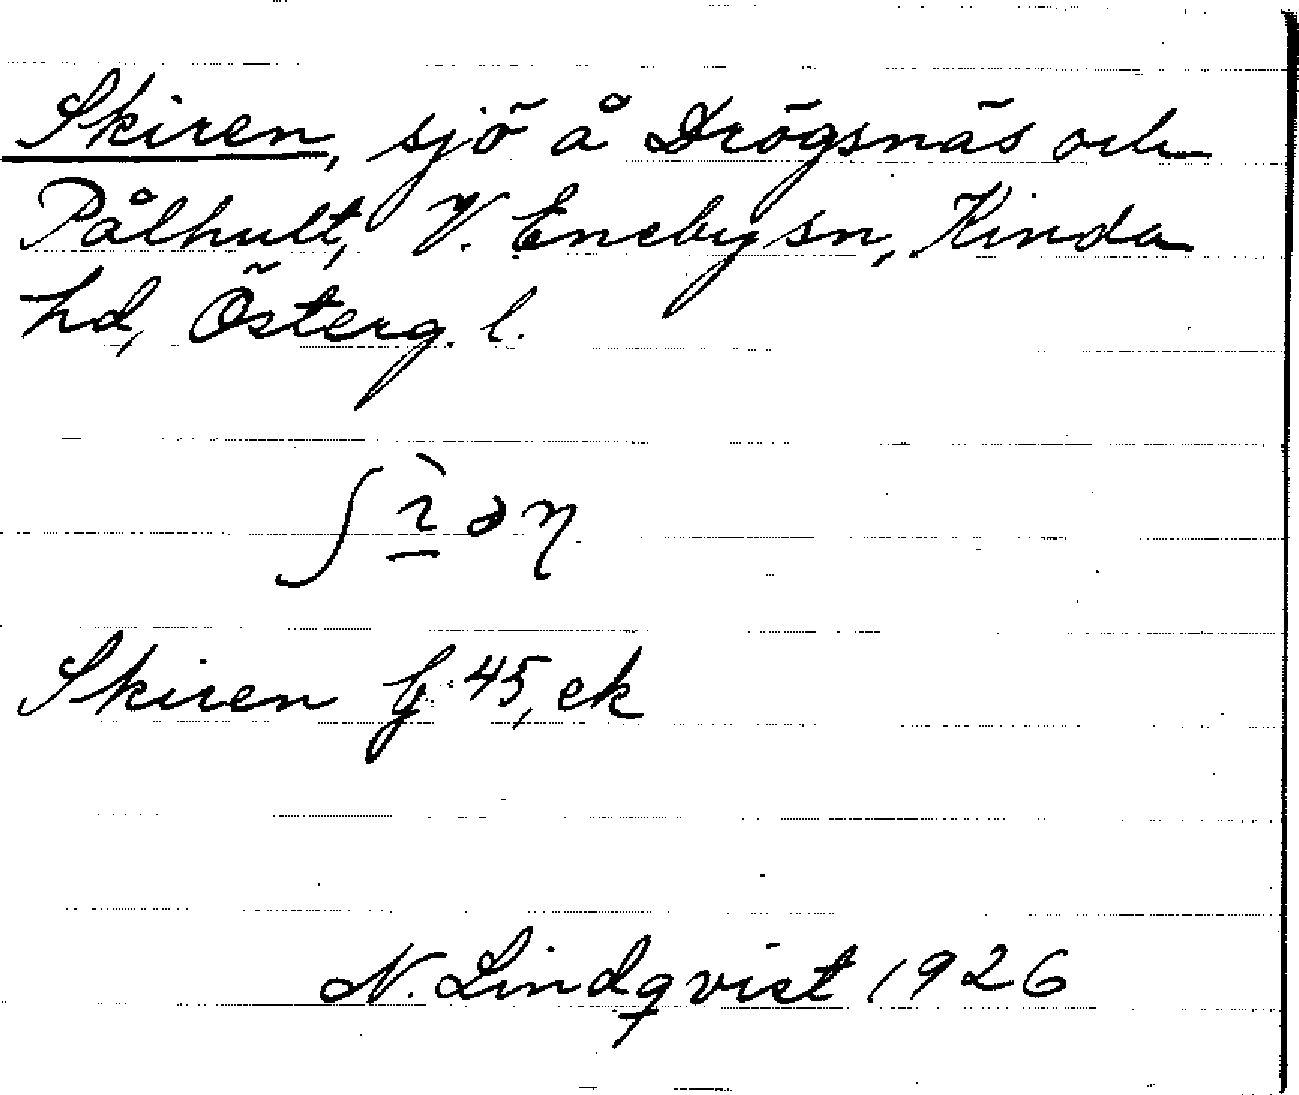 Skiren, sjö å Drögsnäs och
Pålhult, V. Eneby sn, Kinda
hd, Österg. l.
Skiren G 45, ek
N. Lindqvist 1926